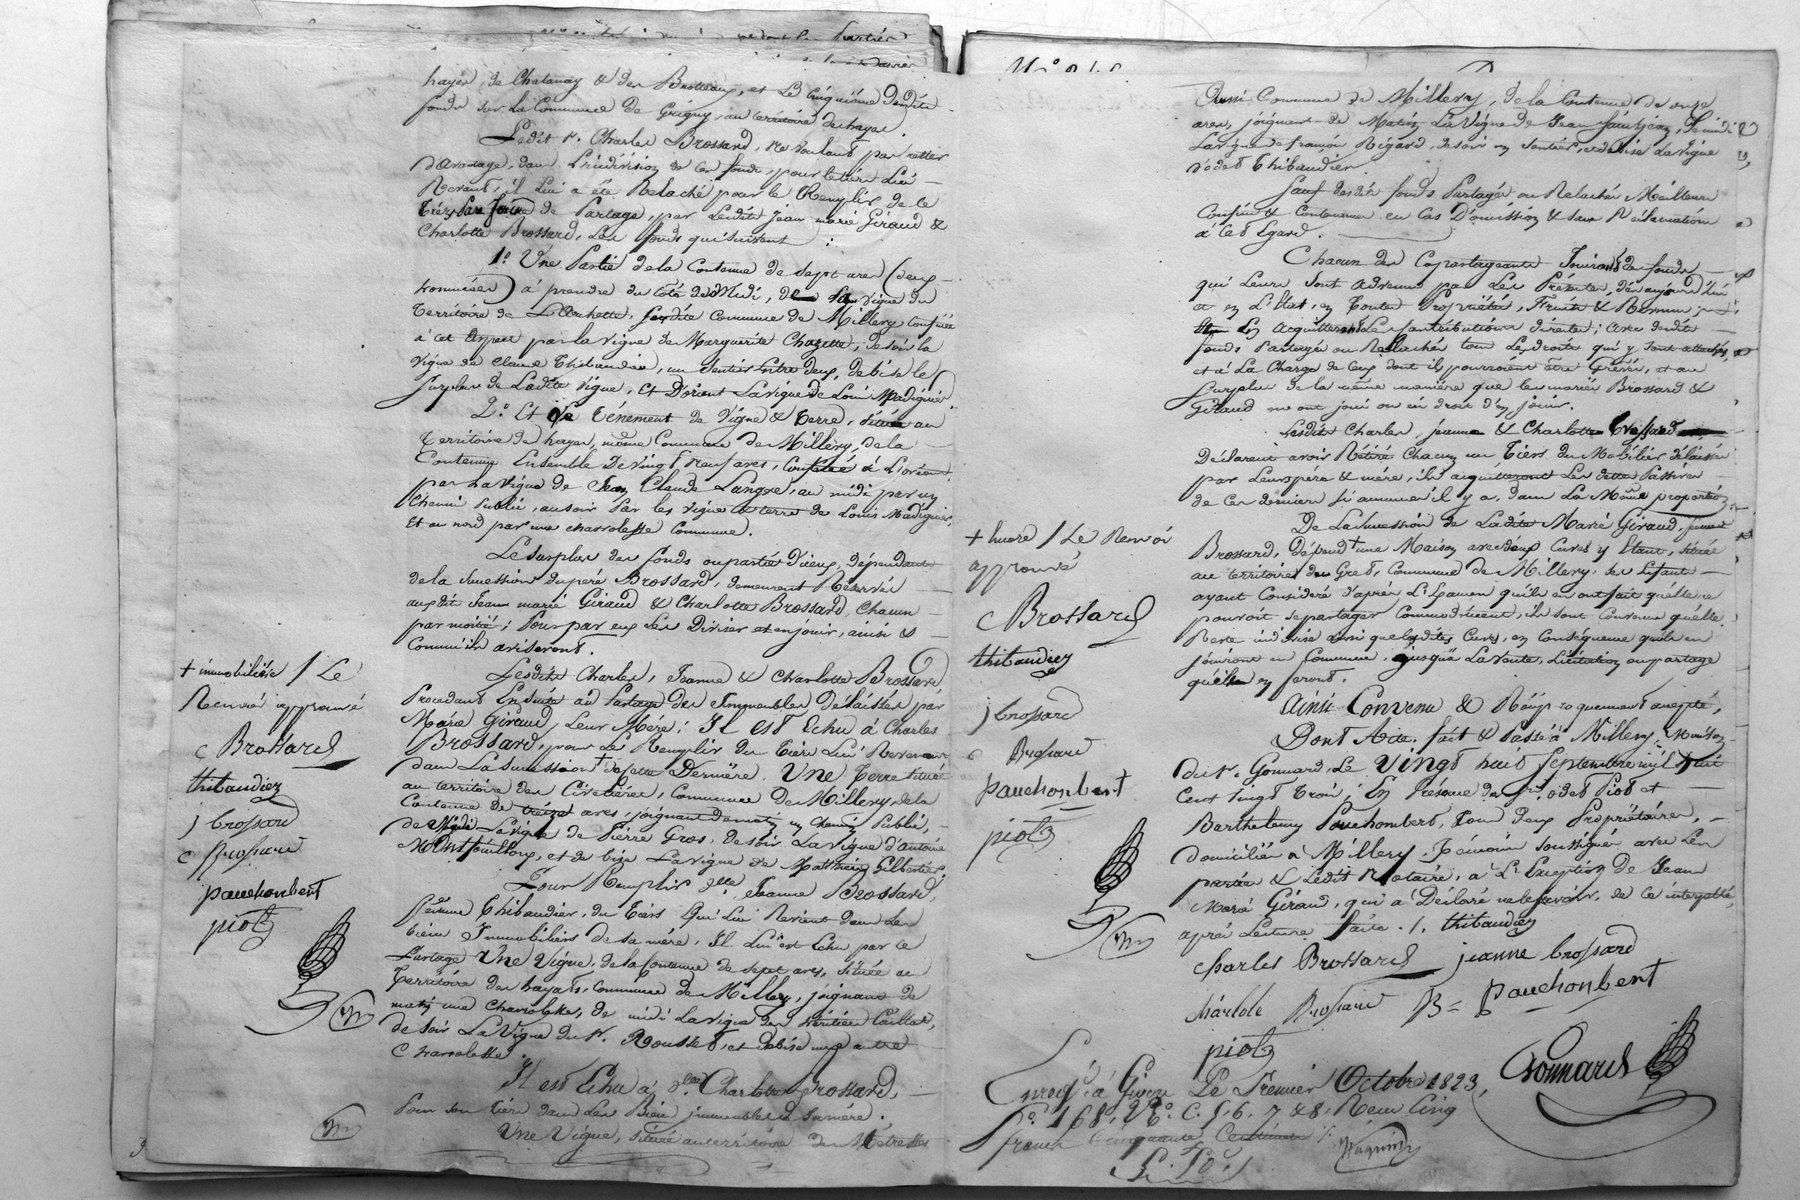 hayer, de Chatanay & des Brotteaux, et Le Cinquième desdits
fonds sur La Commune de Grigny, au territoire des hayes.
Ledit Sr. Charles Brossard, ne voulant pas rester
d'avantage, dans L'indivision de ces fonds, pour le tiers Lui
Revenant, il Lui a été Relaché pour le Remplir de ce
tiers par forme de Partage, par Lesdits Jean marie Giraud &
Charlotte Brossard, Les fonds qui suivent :
1.o Une Partie de la Contenue de Sept ares (deux
hommées) à prendre du Coté de Midi, de la vigne du
Territoire de L'archette, susdite Commune de Millery, Confinée
à cet aspect par la vigne de Marguerite Chazette, de soir la
vigne de Claude Thibaudier, un Sentier entre deux, de bise le
Surplus de Ladite Vigne, et D'orient La vigne de Louis Madignier.
2.o Et Le Ténement de Vigne & Terre, situé au
Territoire de hayes, même Commune de Millery, de la
Contenue Ensemble De vingt neuf ares, Confiné à L'orient
par La vigne de Jean Claude Langre, au midi par un
Chemin Public, au soir Par les vigne & terre de Louis Madignier,
Et au nord par une charrolesse Commune.
Le Surplus des fonds ou partie d'iceux, dépendants
de la Succession du père Brossard, demeurent Réservés
auxdits Jean marie Giraud & Charlotte Brossard, Chacun
par moitié ; Pour par eux Les Diviser et en jouir, ainsi &
Comme ils aviseront.
Lesdits Charles, Jeanne & Charlotte Brossard
Procédant Ensuite au Partage des Immeubles Délaissés par
Marie Giraud, Leur Mère ; Il est Echu à Charles
Brossard, pour Le Remplir du Tiers Lui Revenant
dans La Succession + de cette Dernière, Une Terre située
au territoire des Civetières, Commune de Millery, de la
Contenue de treize ares, joignant de matin un Chemin Public,
de Midi La vigne de Pierre Gros, de soir La vigne d'Antoine
Montfouilloux, et de bise La vigne de Mathieu Gilbertier,
Pour Remplir dlle. Jeanne Brossard,
femme Thibaudier, du Tiers Qui Lui Revient dans Les
biens Immobiliers de sa mère, Il Lui est Echu par le
Partage Une Vigne, de la Contenue de Sept ares, située au
Territoire des hayats, Commune de Millery, joignant de
matin une Charrolesse, de midi La vigne des héritiers Caillat,
de soir La Vigne du Sr. Rousset, et de bise une autre
Charrolesse
Il est Echu à dlle. Charlotte Brossard,
Pour son Tiers dans Les Biens immeubles de sa mère.
Une Vigne, située au territoire des
+ immobilière / Le
Renvoi approuvé
C Brossard
thibaudier
j brossard
C Brossard
pauchonbert
piot
N.o
Aussi Commune de Millery, de la Contenue de onze
ares, joignant de Matin La Vigne de Jean Saintjean, de midi
La vigne de françois Rigard, de soir un Sentier, et de bise La vigne
d'odet Thibaudier.
Sauf desdits fonds Partagés ou Relachés Meilleurs
Confins & Contenues en Cas D'omission & sans Réclamation
à cet Egard.
Chacun des Copartageants Jouiront des fonds
qui Leurs sont advenus par Les Présentes, dès aujourd'hui
& en L'état, en Toute Propriété, Fruits & Revenus ;
Ils En Acquitteront les Contributions directes ; Avec desdits
fonds Partagés ou Relachés tous Les droits qui y sont attachés,
et à La Charge de Ceux dont ils pourroient être Grévés, et au
Surplus de la même manière que Les mariés Brossard &
Giraud en ont joui ou eu droit d'en jouir.
Lesdits Charles, Jeanne & Charlotte Brossard
Déclarent avoir Retiré Chacun un Tiers du Mobilier délaissé
par Leurs père & mère, ils acquitteront Les dettes Passives
de Ces derniers si aucunes il y a, dans La Même proportion
De La Succession de Ladite Marie Giraud, femme
Brossard, Dépend + une Maison avec deux Cuves y Etant, située
au territoire du Gret, Commune de Millery. Les Enfants
ayant Considéré d'après L'Examen qu'ils en ont fait qu'elle ne
pouvoit se partager Commodément, ils sont Convenus qu'elle
Reste indivise ainsi que lesdites Cuves, en Conséquence qu'ils en
jouiront en Commun, jusqu'à La vente, Licitation ou partage
qu'ils en feront.
Ainsi Convenu & Réciproquement accepté,
Dont Acte. fait & Passé à Millery, Maison
du Sr. Gonnard, Le Vingt huit Septembre mil huit
Cent vingt Trois ; En Présence de Sr. odet Piot et
Barthelemy Pauchombert, Tous deux Propriétaires,
domiciliés à Millery. Témoins Soussignés avec Les
parties & Ledit Notaire, à L'Exception de Jean
Marie Giraud, qui a Déclaré ne le savoir, de ce interpellé,
après Lecture faite. /. thibaudier
Charles Brossard jeanne brossard
charlote Brossard B = pauchonbert
piot
Gonnard
+ lueore / Le Renvoi
approuvé
C Brossard
thibaudier
j brossard
C Brossard
pauchonbert
piot
Enregé. à Givors Le Premier Octobre 1823,
fo. 168. Vo. C. 5. 6. 7 & 8. Reçu Cinq
francs Cinquante Centimes